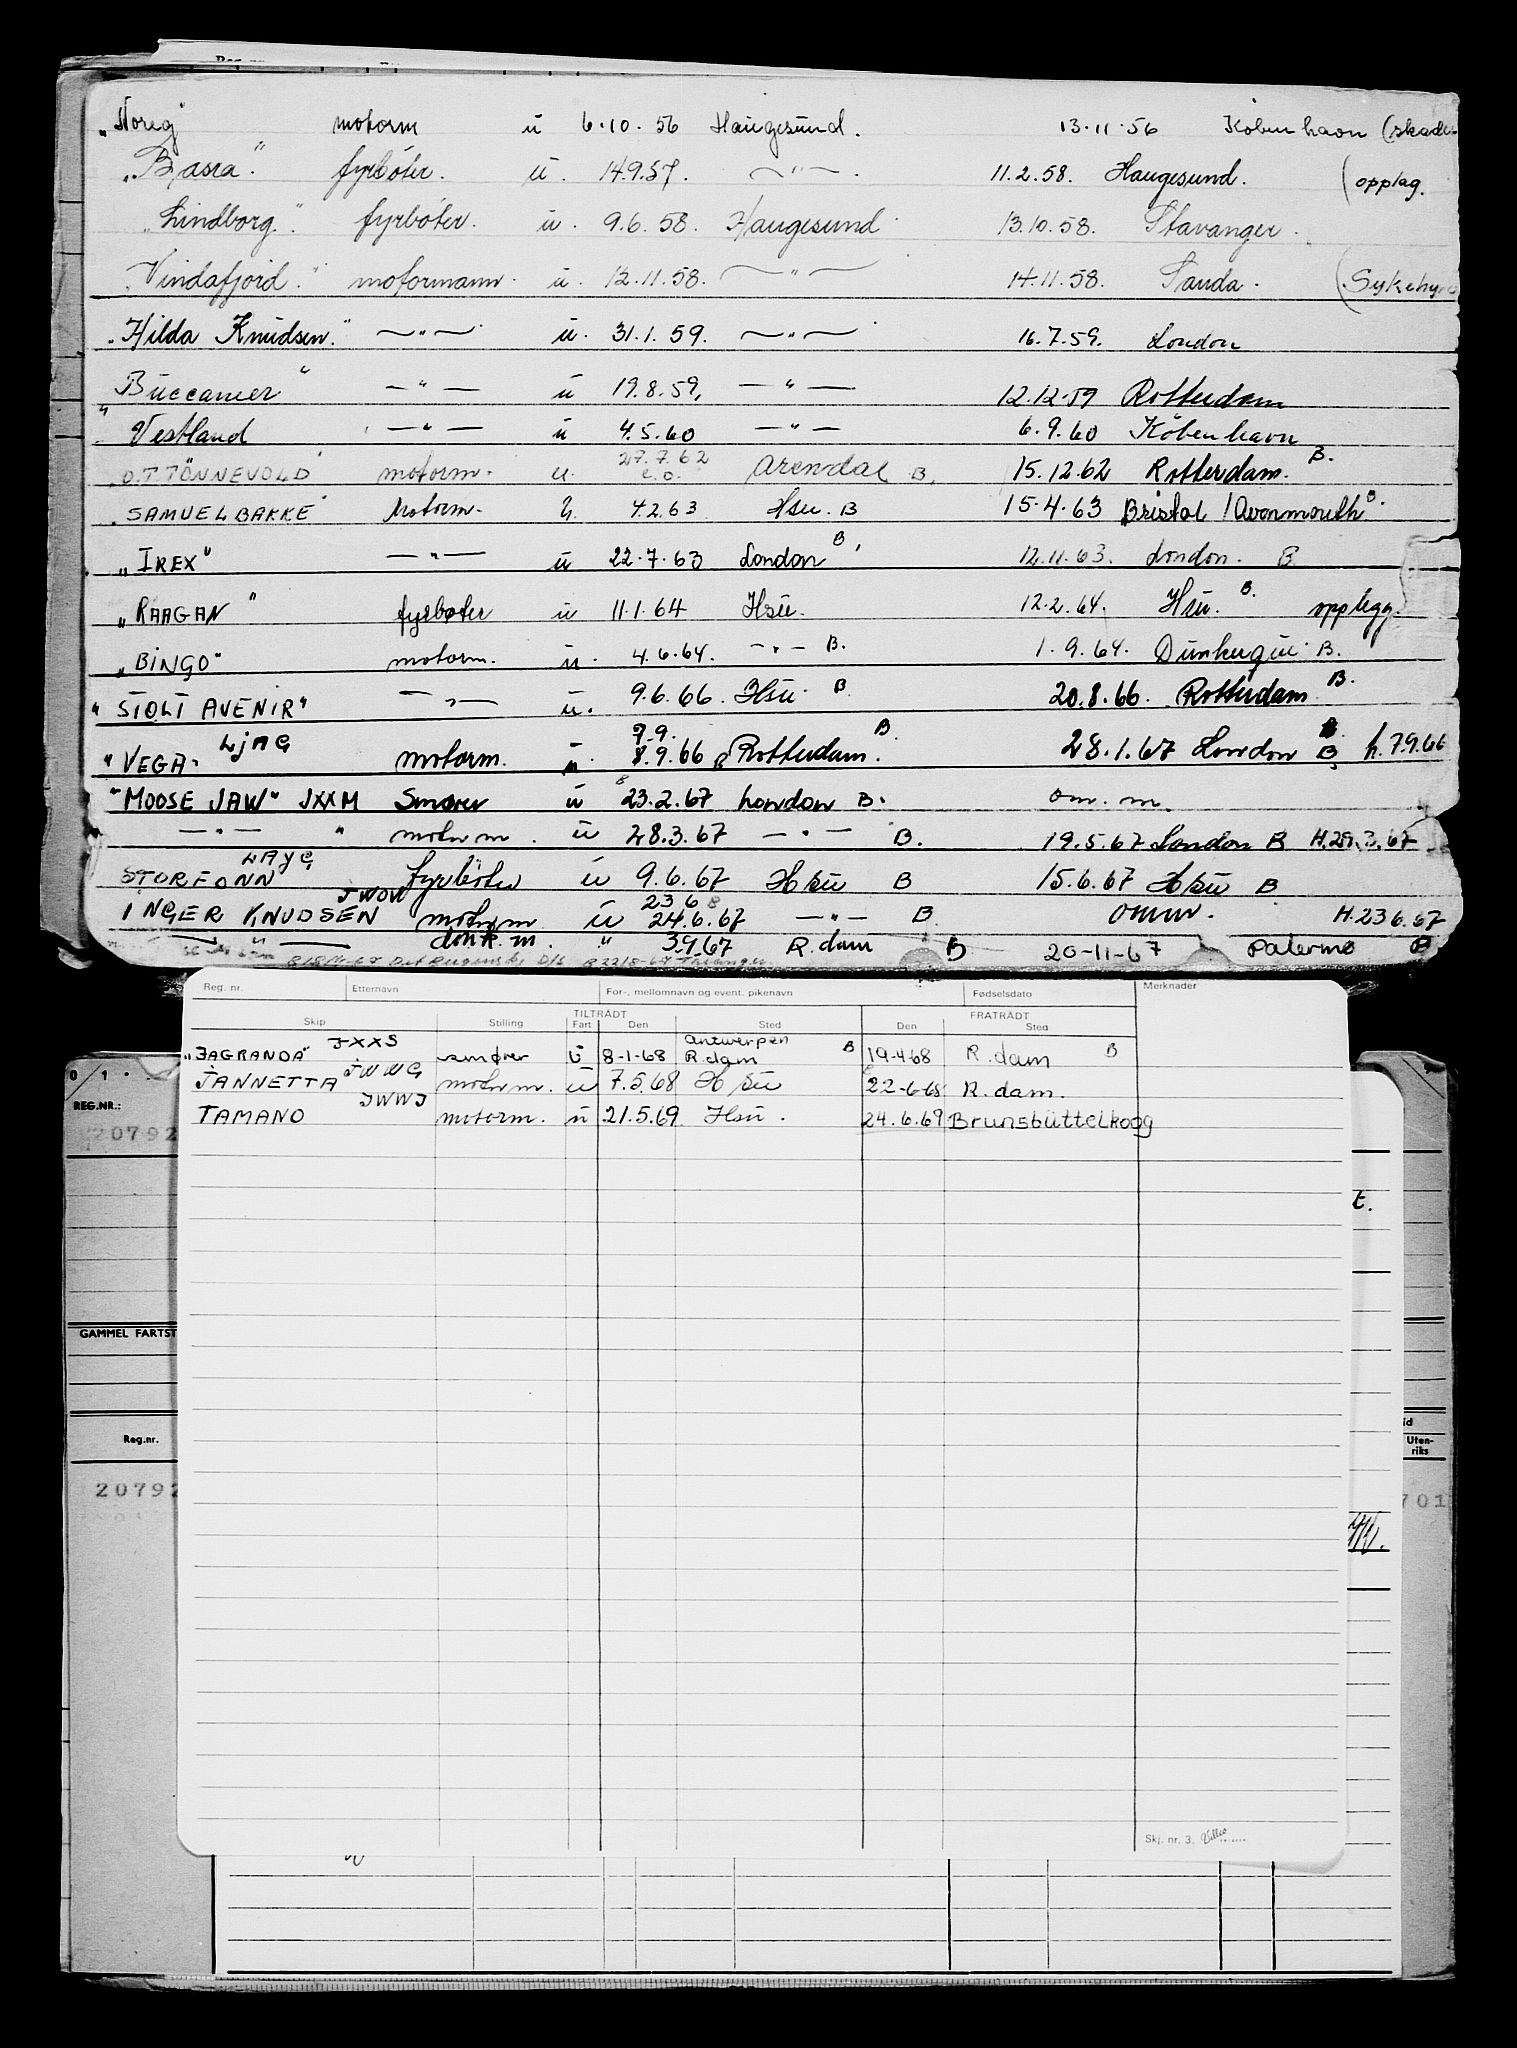 "Noreg" motorm u 6.10.56 Haugesund. 13.11.56 København (skade
"Basra". fyrbøter. u. 14.9.57. —"—. 11.2.58. Haugesund. (opplag.
"Lindborg". fyrbøter. u. 9.6.58. Haugesund 13.10.58. Stavanger.
"Vindafjord". motormann. u. 12.11.58. —"— 14.11.58. Sauda. (Sykehus
"Hilda Knudsen." —"— u. 31.1.59. —"— 16.7.59. London
"Buccaneer" —"— u 19.8.59, —"— 12.12.59 Rotterdam
"Vestland —"— u 4.5.60 —"— 6.9.60 København
27.7.62
"O.T. TÖNNEVOLD" motorm. u. e.o. Arendal B. 15.12.62 Rotterdam. B.
"SAMUEL BAKKE" Motorm. U. 4.2.63 Hsu. B 15.4.63 Bristol /Avonmouth B.
"IREX" —"— u 22.7.63 London B. 12.11.63. London. B
"RAAGAN" fyrbøter u 11.1.64 Hsu. 12.2.64. Hsu. B. opplegg.
"BINGO" motorm. u. 4.6.64. —"— B. 1.9.64. Dunkerque. B.
"STOLT AVENIR" —"— u. 9.6.66 Hsu. B 20.8.66. Rotterdam B.
LJAG 7.9.
"VEGA" motorm. u. 8.9.66 Rotterdam. B 28.1.67 London B h.7.9.66
"MOOSE JAW" JXXM Smører u 23.2.67 London B. om. m.
—"— " motorm. u 28.3.67 —"— B. 19.5.67 London B H.29.3.67
LAYG
STORFONN fyrbøter u 9.6.67 Hsu B 15.6.67 Hsu B
JWOW 23 6 B
INGER KNUDSEN motorm u 24.6.67 —"— B omm. H.23 6.67
—"— donk.m. " 3.9.67 R.dam B 20-11-67 Palermo B
Reg. nr. Etternavn For-, mellomnavn og event. pikenavn Fødselsdato Merknader
TILTRÅDT FRATRÅDT
Skip Stilling Fart Den Sted Den Sted
JXXS Antwerpen
"JAGRANDA" smører U 8-1-68 R.dam B 19-4-68 R.dam B
JWWG
JANNETTA motorm. u 7.5.68 Hsu 22-6-68 R.dam.
JWWJ
TAMANO motorm. u 21.5.69 Hsu. 24.6.69 Brunsbüttelkoog
0 1
REG.NR.:
20792
t.
GAMMEL FARTST
id
Reg.nr. Uten-
riks
20792 701
Skj. nr. 3.